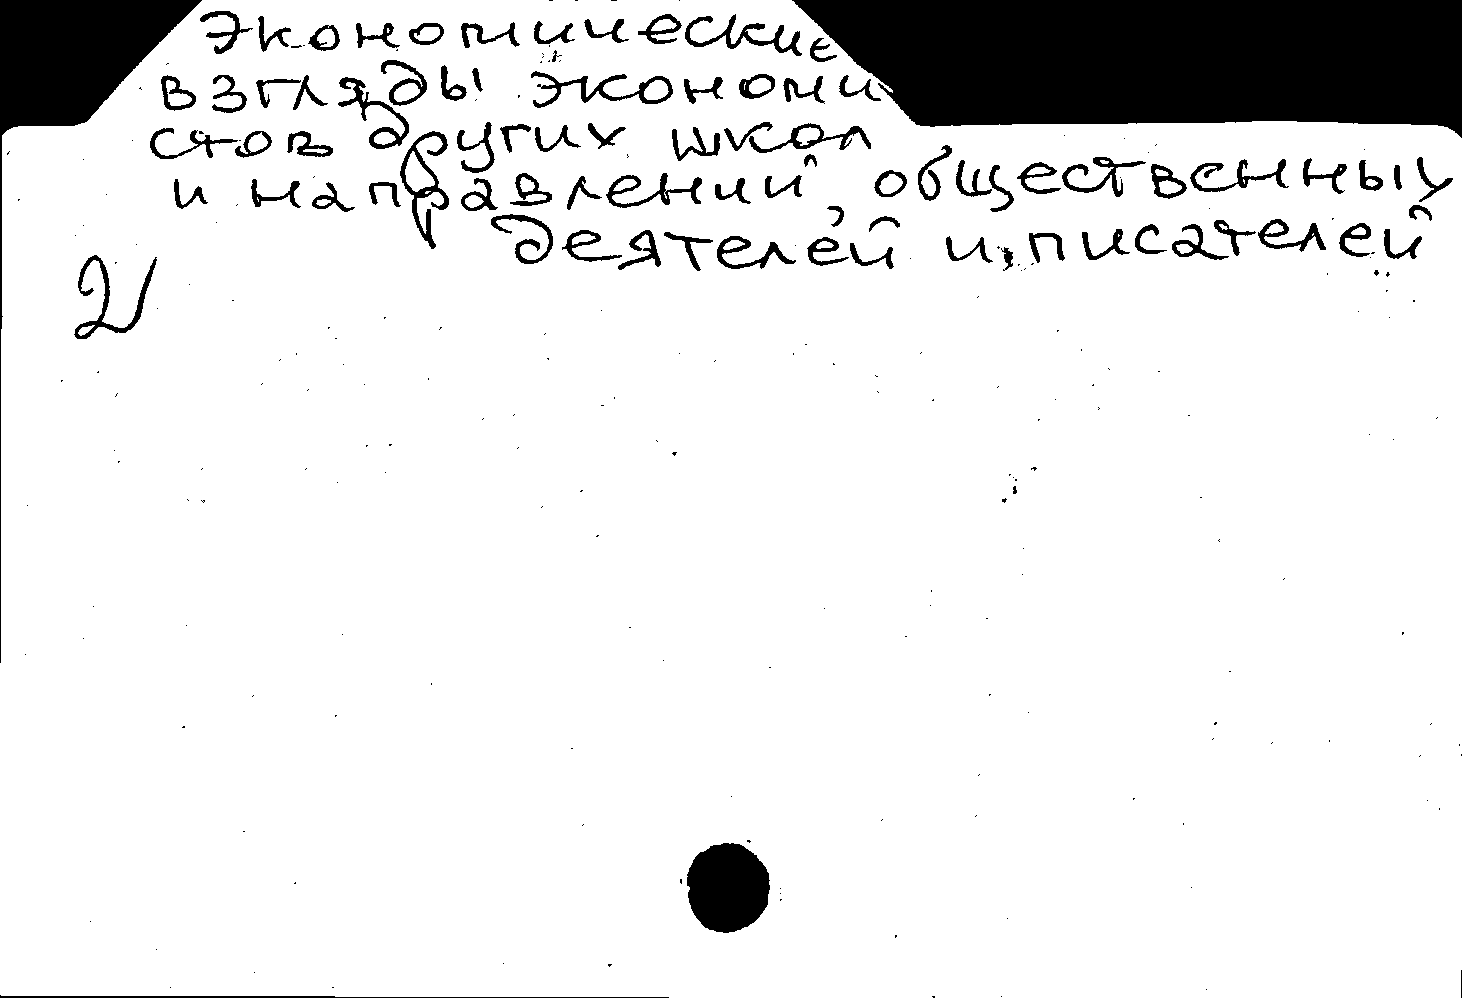 Экономические
взгляды экономи
стов других школ
и направлений, общественных
деятелей и писателей